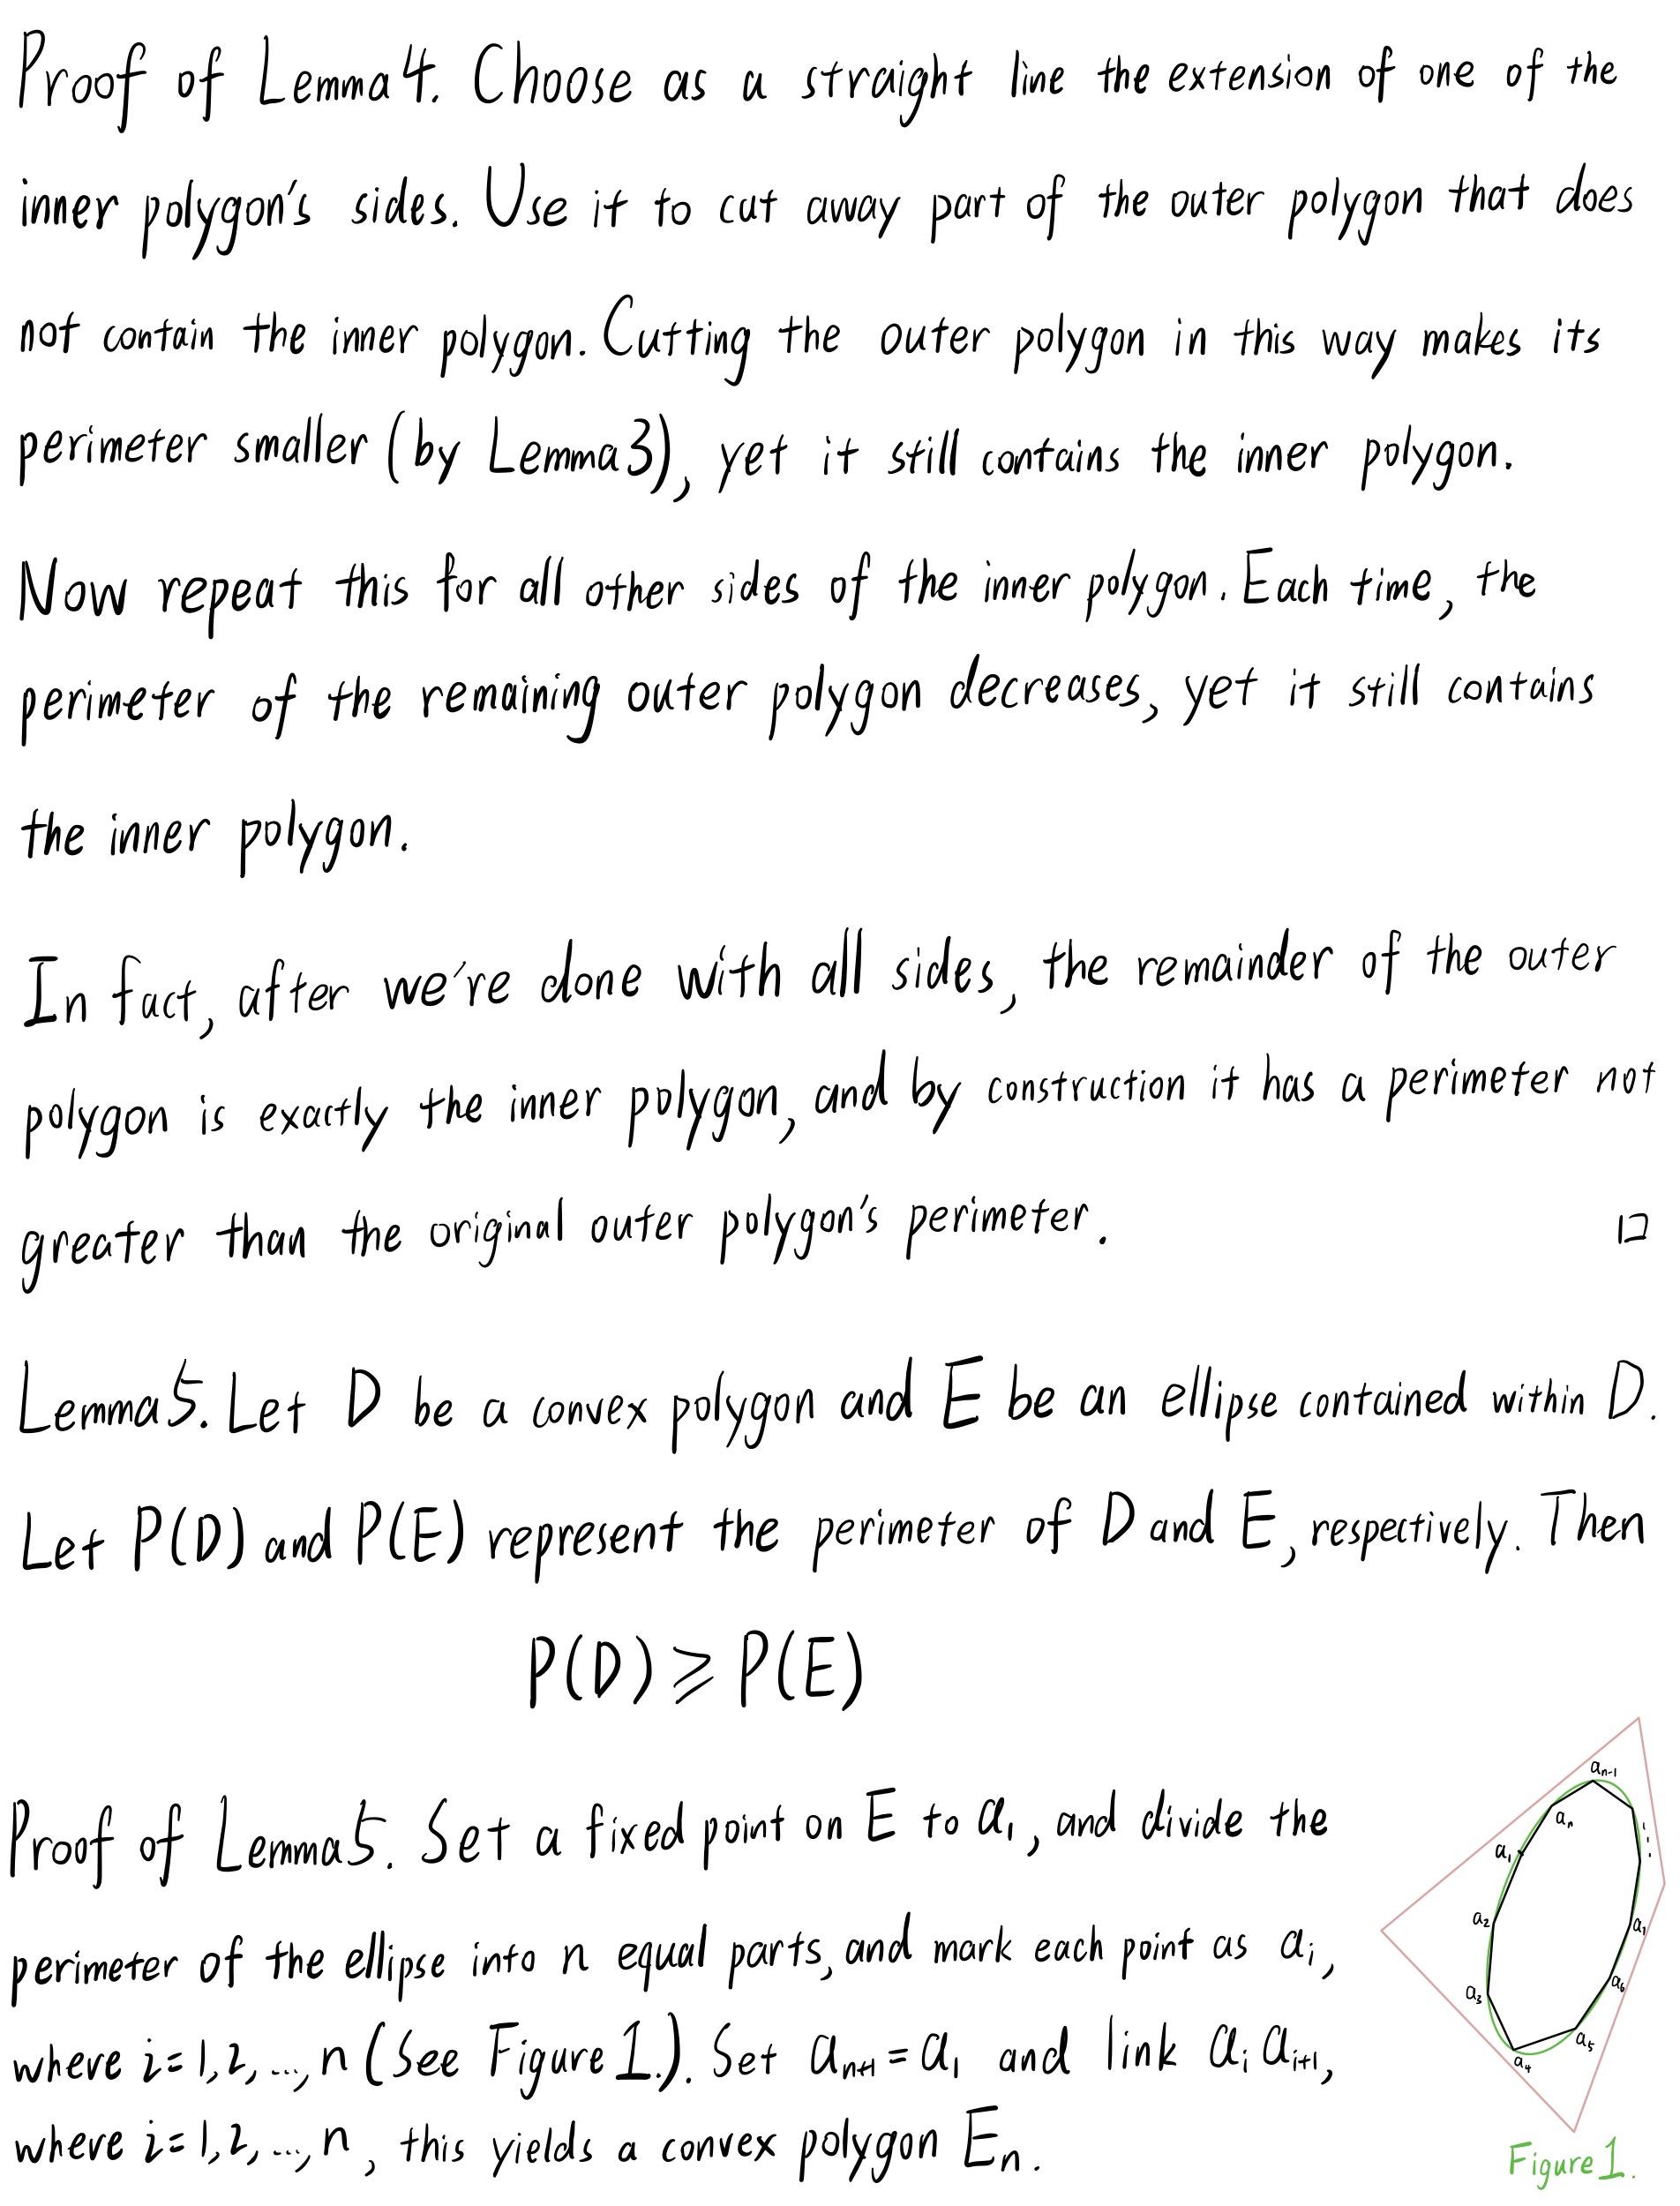 Proof of Lemma 4. Choose as a straight line the extension of one of the
inner polygon's sides. Use it to cut away part of the outer polygon that does
not contain the inner polygon. Cutting the outer polygon in this way makes its
perimeter smaller (by Lemma 3), yet it still contains the inner polygon.
Now repeat this for all other sides of the inner polygon. Each time, the
perimeter of the remaining outer polygon decreases, yet it still contains
the inner polygon.
In fact, after we're done with all sides, the remainder of the outer
polygon is exactly the inner polygon, and by construction it has a perimeter not
greater than the original outer polygon's perimeter. □
Lemma 5. Let D be a convex polygon and E be an ellipse contained within D.
Let P(D) and P(E) represent the perimeter of D and E, respectively. Then
P(D) ⩾ P(E)
Proof of Lemma 5. Set a fixed point on E to a₁, and divide the
perimeter of the ellipse into n equal parts, and mark each point as aᵢ,
where i=1,2,...,n (See Figure 1.). Set aₙ₊₁ = a₁ and link aᵢ aᵢ₊₁,
where i=1,2,...,n, this yields a convex polygon Eₙ.
aₙ₋₁
aₙ
a₁
a₂
a₇
a₃
a₆
a₅
a₄
Figure 1.